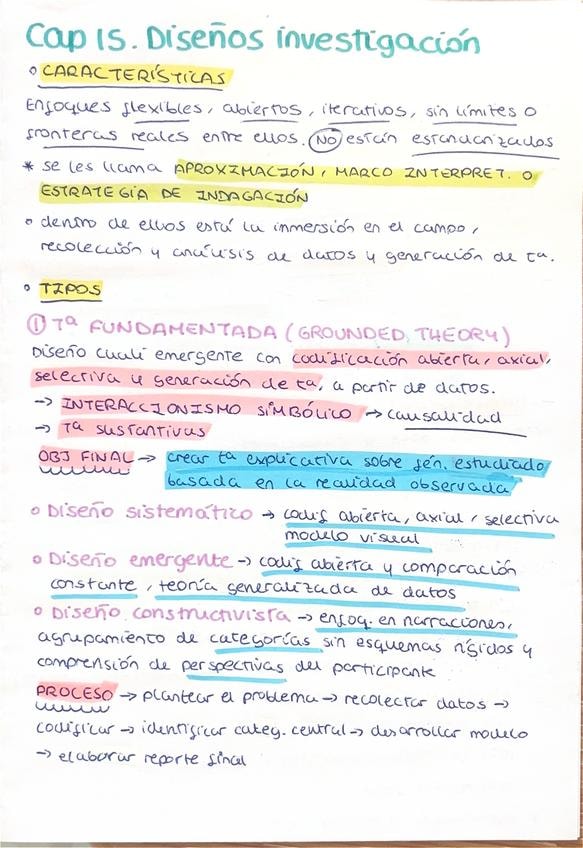 Cap 15. Diseños investigación
○ CARACTERÍSTICAS
Enfoques flexibles, abiertos, iterativos, sin límites o
fronteras reales entre ellos. NO están estandarizados
* se les llama APROXIMACIÓN, MARCO INTERPRET. O
ESTRATEGIA DE INDAGACIÓN
○ dentro de ellos está la inmersión en el campo,
recolección y análisis de datos y generación de tª.
○ TIPOS
① Tª FUNDAMENTADA (GROUNDED THEORY)
Diseño cuali emergente con codificación abierta, axial,
selectiva y generación de tª, a partir de datos.
→ INTERACCIONISMO SIMBÓLICO → causalidad
→ Tª sustantivas
OBJ FINAL → crear tª explicativa sobre fén. estudiado
basada en la realidad observada
○ Diseño sistemático → codif abierta, axial, selectiva
modelo visual
○ Diseño emergente → codif abierta y comparación
constante, teoría generalizada de datos
○ Diseño constructivista → enfoq. en narraciones,
agrupamiento de categorías sin esquemas rígidos y
comprensión de perspectivas del participante
PROCESO → plantear el problema → recolectar datos →
codificar → identificar categ. central → desarrollar modelo
→ elaborar reporte final